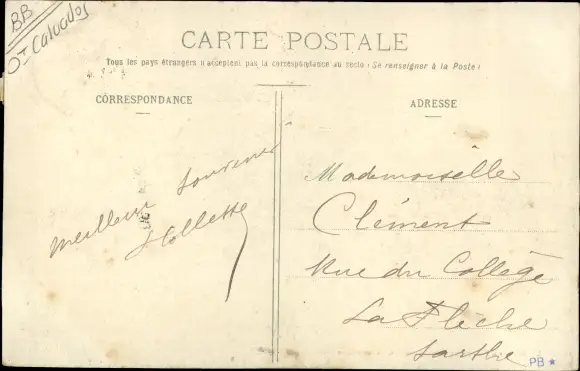 BB
Dt Calvados
CARTE POSTALE
Tous les pays étrangers n'acceptent pas la correspondance au recto (Se renseigner à la Poste)
CORRESPONDANCE
ADRESSE
Meilleur souvenir
Mademoiselle
Clément
Rue du Collège
La Flèche
Sarthe
PB *